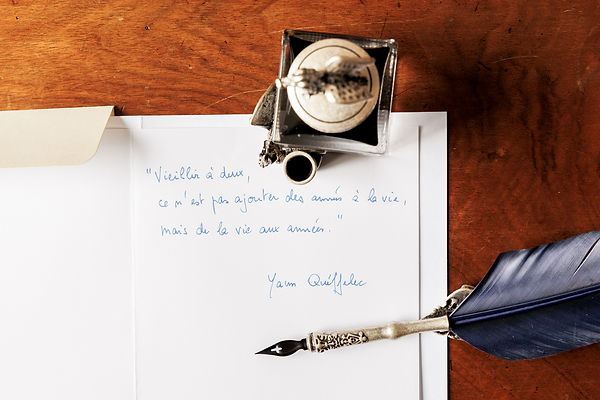 "Vieillir à deux,
ce n'est pas ajouter des années à la vie,
mais de la vie aux années."
Yann Quéffelec